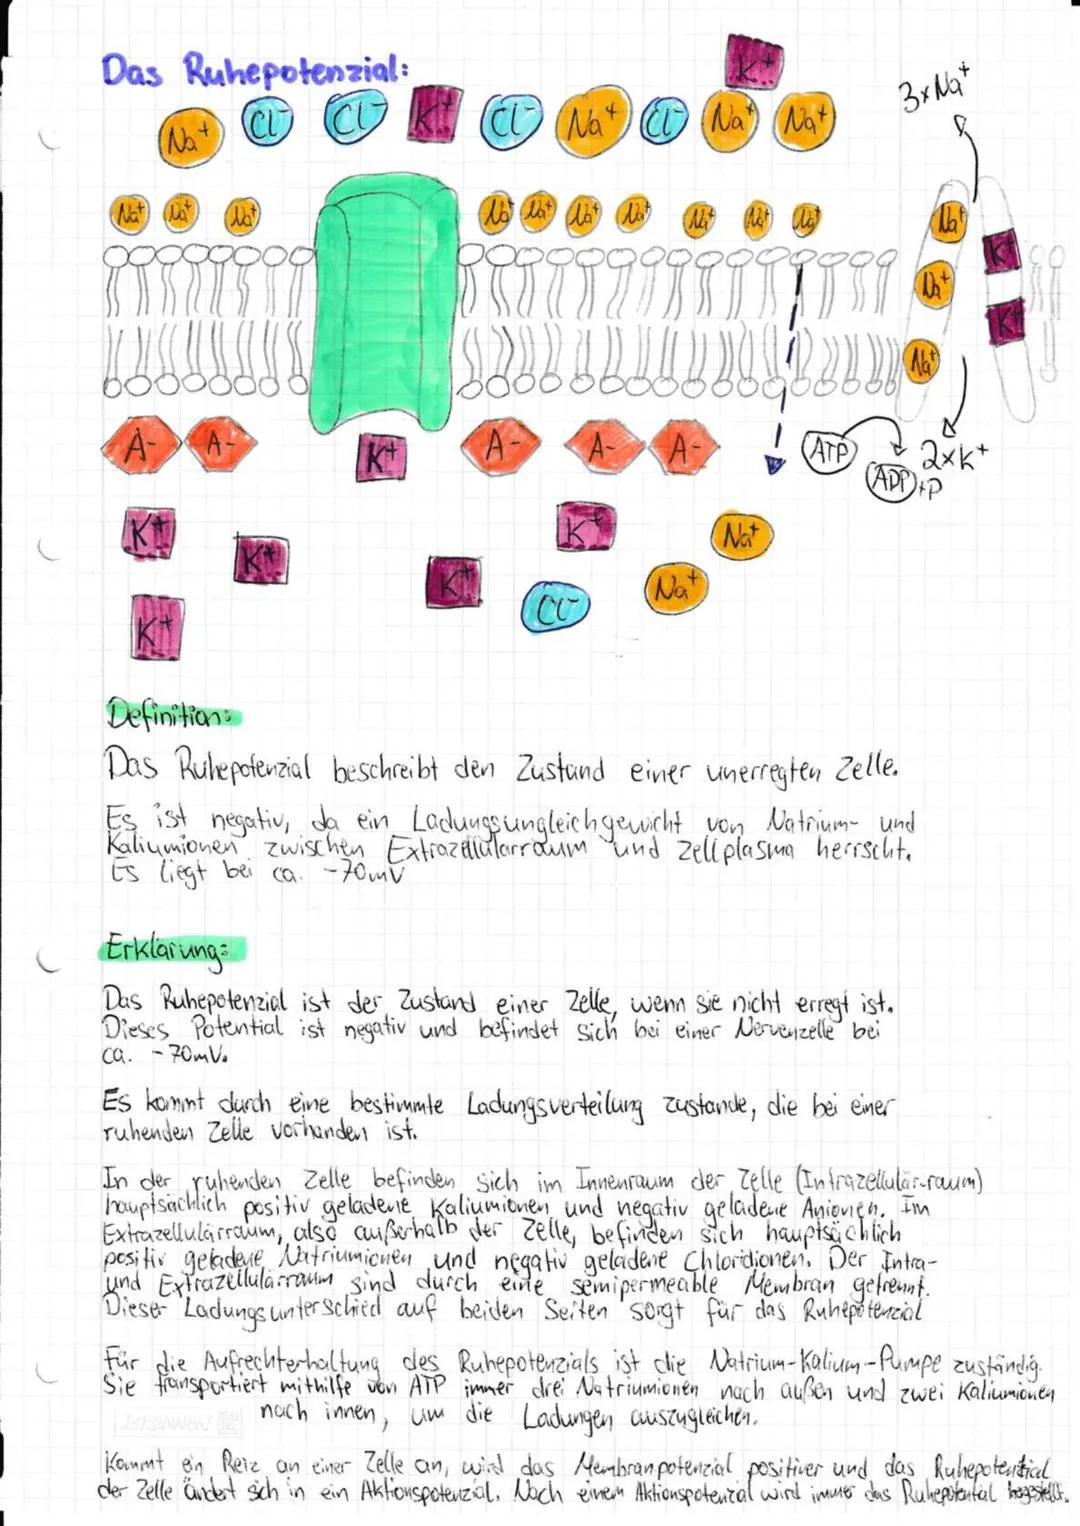 Das Ruhepotenzial:
K+
3xNa+
Na+ Cl- Cl- K+ Cl- Na+ Cl- Na+ Na+
Na+ Na+ Na+ Na+ Na+ Na+ Na+ Na+ Na+ Na+
Na+
K+
Na+
K+
Na+
A- A- K+ A- A- A-
ATP
2xK+
ADP +P
K+ K+ Na+
K+ K+ Na+
Cl-
K+
Definition:
Das Ruhepotenzial beschreibt den Zustand einer unerregten Zelle.
Es ist negativ, da ein Ladungsungleichgewicht von Natrium- und
Kaliumionen zwischen Extrazellulärraum und Zellplasma herrscht.
Es liegt bei ca. -70mV
Erklärung:
Das Ruhepotenzial ist der Zustand einer Zelle, wenn sie nicht erregt ist.
Dieses Potential ist negativ und befindet sich bei einer Nervenzelle bei
ca. -70mV.
Es kommt durch eine bestimmte Ladungsverteilung zustande, die bei einer
ruhenden Zelle vorhanden ist.
In der ruhenden Zelle befinden sich im Innenraum der Zelle (Intrazellulär-raum)
hauptsächlich positiv geladene Kaliumionen und negativ geladene Anionen. Im
Extrazellulärraum, also außerhalb der Zelle, befinden sich hauptsächlich
positiv geladene Natriumionen und negativ geladene Chloridionen. Der Intra-
und Extrazellulärraum sind durch eine semipermeable Membran getrennt.
Dieser Ladungsunterschied auf beiden Seiten sorgt für das Ruhepotenzial
Für die Aufrechterhaltung des Ruhepotenzials ist die Natrium-Kalium-Pumpe zuständig.
Sie transportiert mithilfe von ATP immer drei Natriumionen nach außen und zwei Kaliumionen
nach innen, um die Ladungen auszugleichen.
Kommt ein Reiz an einer Zelle an, wird das Membranpotenzial positiver und das Ruhepotential
der Zelle ändert sich in ein Aktionspotenzial. Nach einem Aktionspotenzal wird immer das Ruhepotential